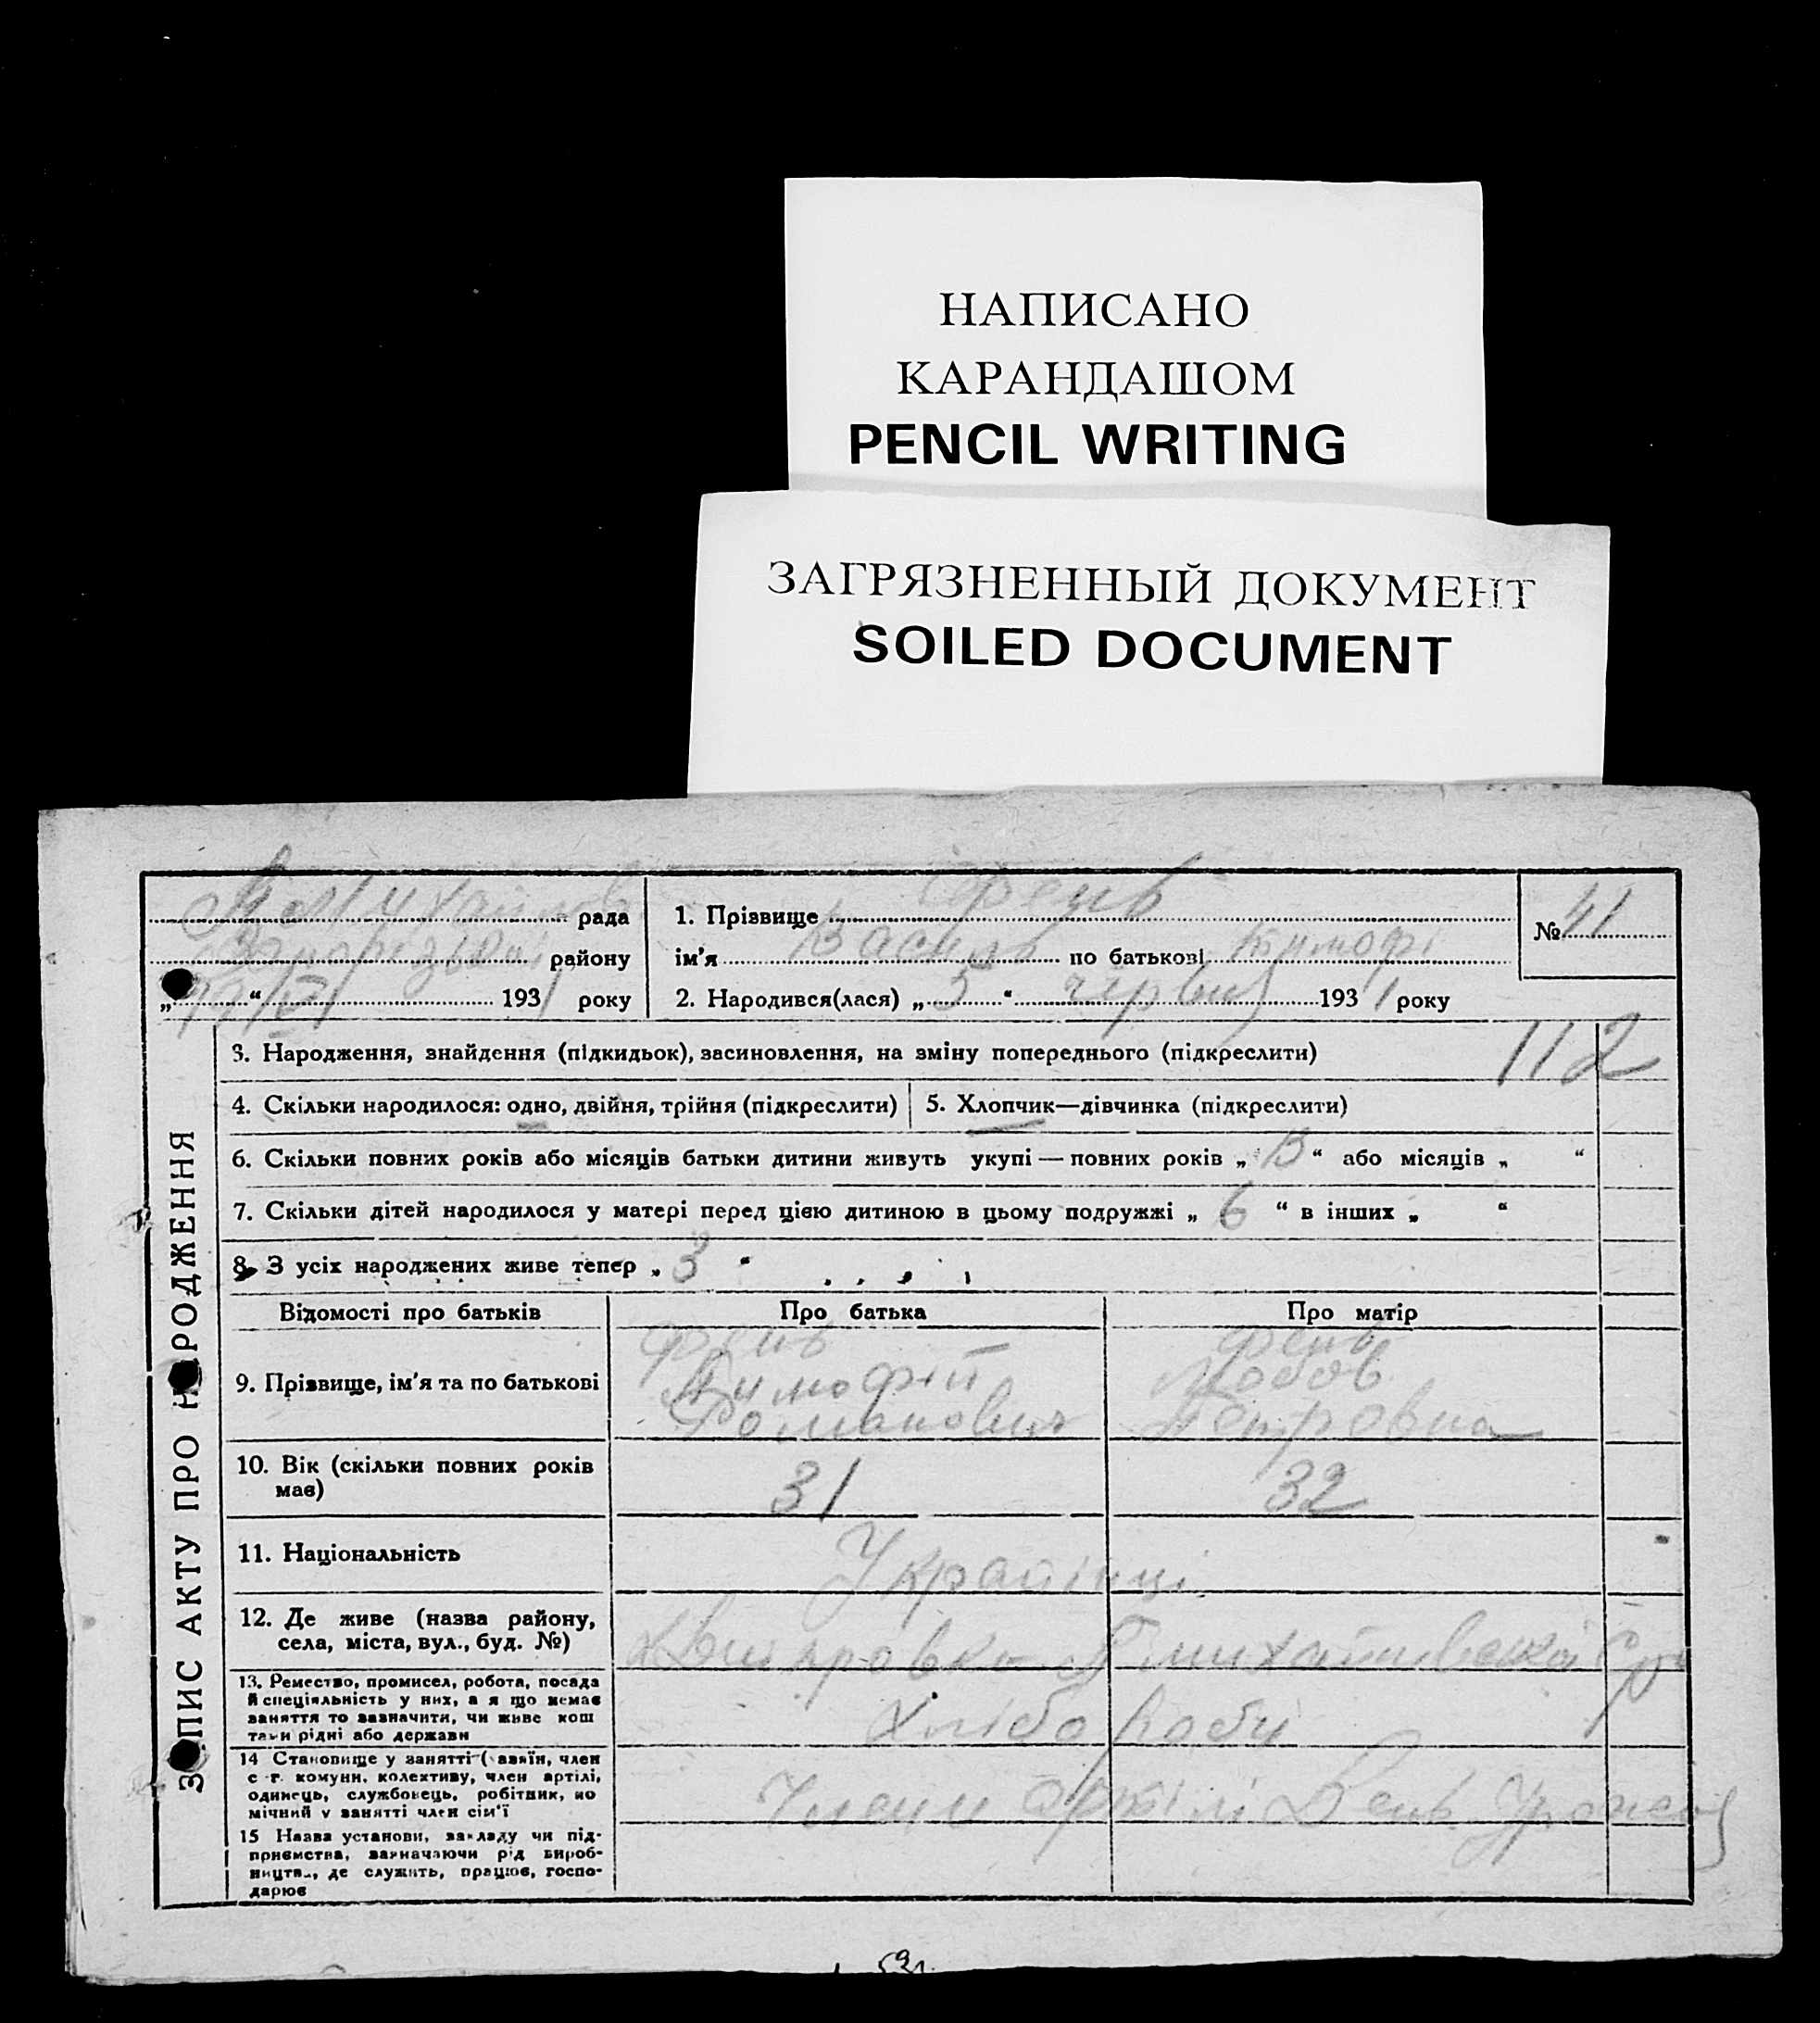 НАПИСАНО
КАРАНДАШОМ
PENCIL WRITING
ЗАГРЯЗНЕННЫЙ ДОКУМЕНТ
SOILED DOCUMENT
рада
району
1931 року
1. Прізвище
ім'я Василь по батькові Тимофі
2. Народився(лася) „5“ червня 1931 року
№ 41
112
ЗАПИС АКТУ ПРО НАРОДЖЕННЯ
3. Народження, знайдення (підкидьок), засиновлення, на зміну попереднього (підкреслити)
4. Скільки народилося: одно, двійня, трійня (підкреслити)
5. Хлопчик—дівчинка (підкреслити)
6. Скільки повних років або місяців батьки дитини живуть укупі — повних років „ “ або місяців „ “
7. Скільки дітей народилося у матері перед цією дитиною в цьому подружжі „ 6 “ в інших „ “
8. З усіх народжених живе тепер „ 3 “
Відомості про батьків
Про батька
Про матір
9. Прізвище, ім'я та по батькові
Фень
Тимофій
Романович
Фень
Любов
Петровна
10. Вік (скільки повних років
має)
31
32
11. Національність
Українці
12. Де живе (назва району,
села, міста, вул., буд. №)
13. Ремество, промисел, робота, посада
й спеціяльність у них, а я що немає
заняття то зазначити, чи живе кош
тами рідні або держави
Хлібороби
14 Становище у занятті (хазяїн, член
с-г. комуни, колективу, член артілі,
одинець, службовець, робітник, по
мічний у занятті член сім'ї
Члени артілі День Урожаю
15 Назва установи, закладу чи під-
приємства, зазначаючи рід вироб-
ництва, де служить, працює, госпо-
дарює